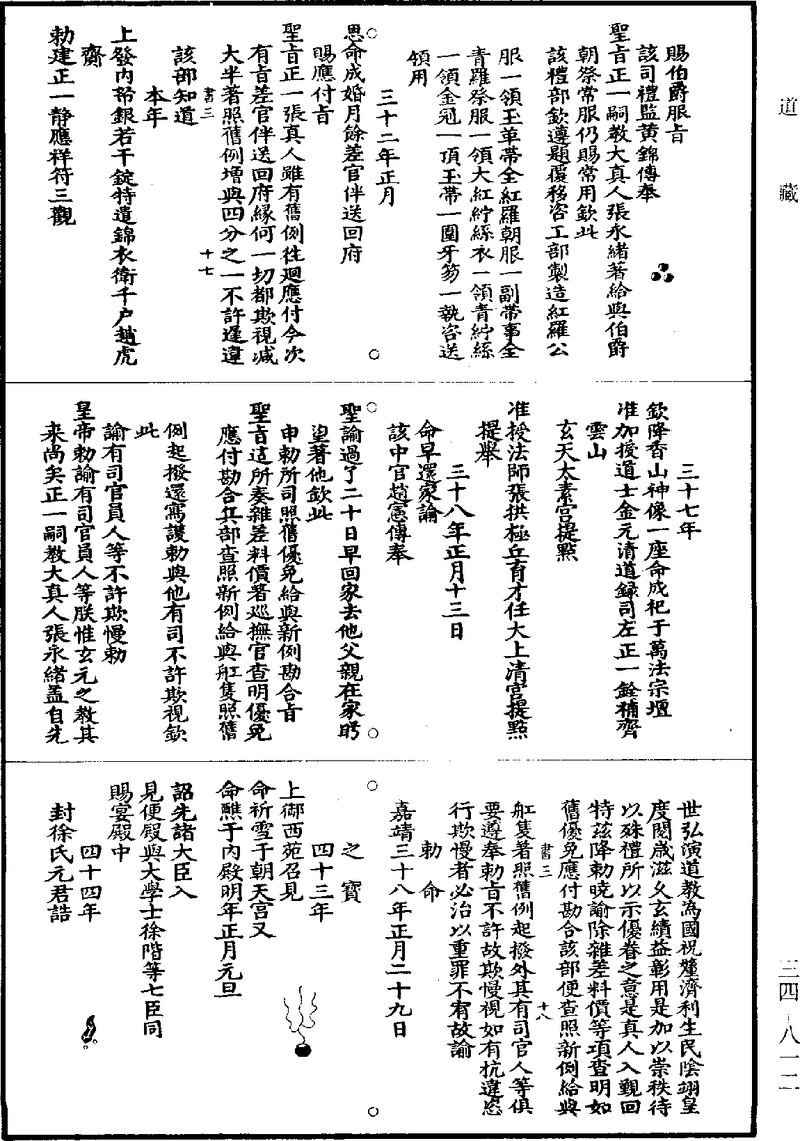 道藏
賜伯爵服㫖
該司禮監黃錦傳奉
聖㫖正一嗣教大真人張永緒著給與伯爵
朝祭常服仍賜常用欽此
該禮部欽遵題覆移咨工部製造紅羅公
服一領玉革帶全紅羅朝服一副帶事全
青羅祭服一領大紅紵絲衣一領青紵絲
一領金冠一頂玉帶一圍牙笏一執咨送
領用
三十二年正月
恩命成婚月餘差官伴送回府
賜應付㫖
聖㫖正一張真人雖有舊例徃廻應付今次
有㫖差官伴送回府緣何一切都欺視减
大半著照舊例增與四分之一不許遲違
書三
十七
該部知道
本年
上發内帑銀若干錠特遣錦衣衛千户趙虎
齋
勅建正一静應祥符三觀
三十七年
欽降香山神像一座命成祀于萬法宗壇
准加授道士金元清道録司左正一銓補齊
雲山
玄天太素宫提點
准授法師張拱極丘育才任大上清宫提點
提舉
三十八年正月十三日
命早還家諭
該中官趙憲傳奉
聖諭過了二十日早回家去他父親在家盻
望著他欽此
申勅所司照舊優免給與新例勘合㫖
聖㫖這所奏雜差料價著巡撫官查明優免
應付勘合兵部查照新例給與舡隻照舊
例起撥還寫護勅與他有司不許欺視欽
此
諭有司官員人等不許欺慢勅
皇帝勅諭有司官員人等朕惟玄元之教其
来尚矣正一嗣教大真人張永緒盖自先
世弘演道教為國祝釐濟利生民陰翊皇
度閲歳滋久玄績益彰用是加以崇秩待
以殊禮所以示優眷之意是真人入覲回
特兹降勅曉諭除雜差料價等項查明如
舊優免應付勘合該部便查照新例給與
書三
十八
舡隻著照舊例起撥外其有司官人等俱
要遵奉勅㫖不許故欺慢視如有抗違恣
行欺慢者必治以重罪不宥故諭
嘉靖三十八年正月二十九日
勅命
之寶
四十三年
上御西苑召見
命祈雪于朝天宫又
命醮于内殿明年正月元旦
詔先諸大臣入
見便殿與大學士徐階等七臣同
賜宴殿中
四十四年
封徐氏元君誥
三四-八一二